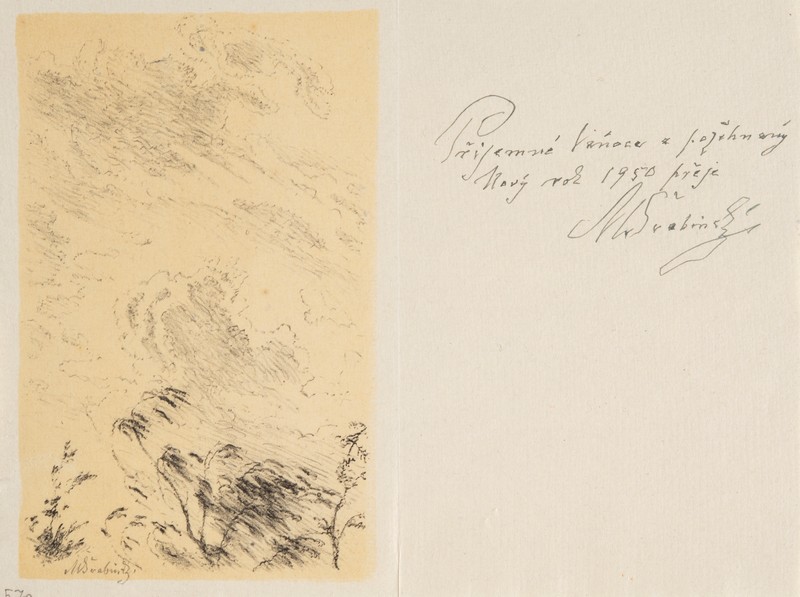 Příjemné Vánoce a požehnaný
Nový rok 1950 přeje
M Švabinský
MŠvabinský